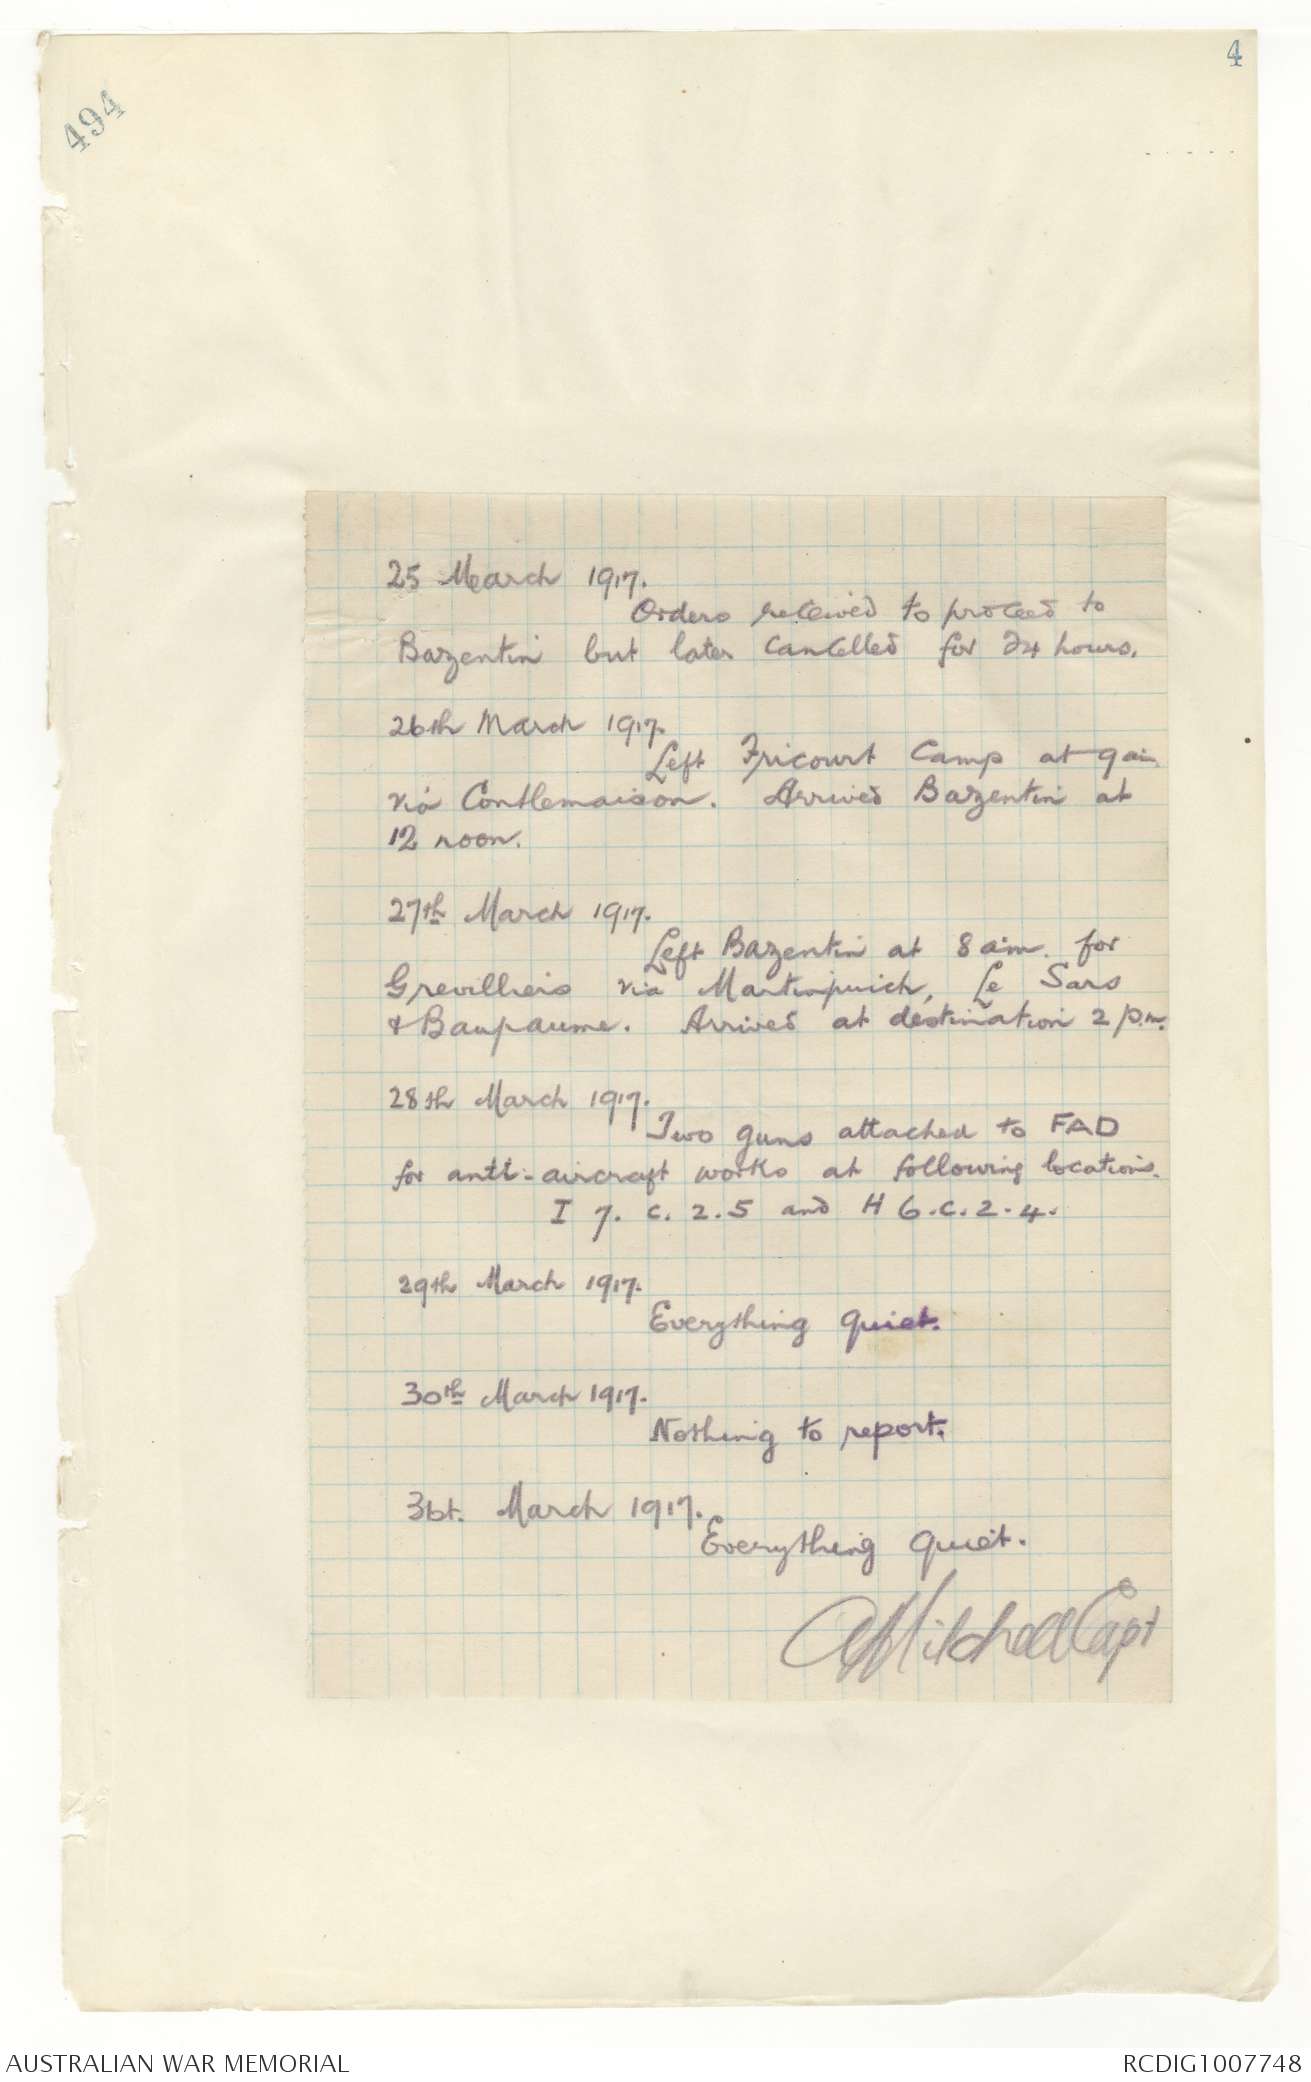 4
494
25 March 1917.
Orders received to proceed to
Bazentin but later cancelled for 24 hours.
26th March 1917.
Left Fricourt Camp at 9 am
via Contlemaison. Arrived Bazentin at
12 noon.
27th March 1917.
Left Bazentin at 8 am. for
Grevilliers via Martinpuich, Le Sars
& Baupaume. Arrived at destination 2 p.m.
28th March 1917.
Two guns attached to FAD
for anti-aircraft works at following locations.
I 7. c. 2.5 and H 6.c.2.4.
29th March 1917.
Everything quiet.
30th March 1917.
Nothing to report.
31st. March 1917.
Everything quiet.
AMitchell Capt
AUSTRALIAN WAR MEMORIAL
RCDIG1007748